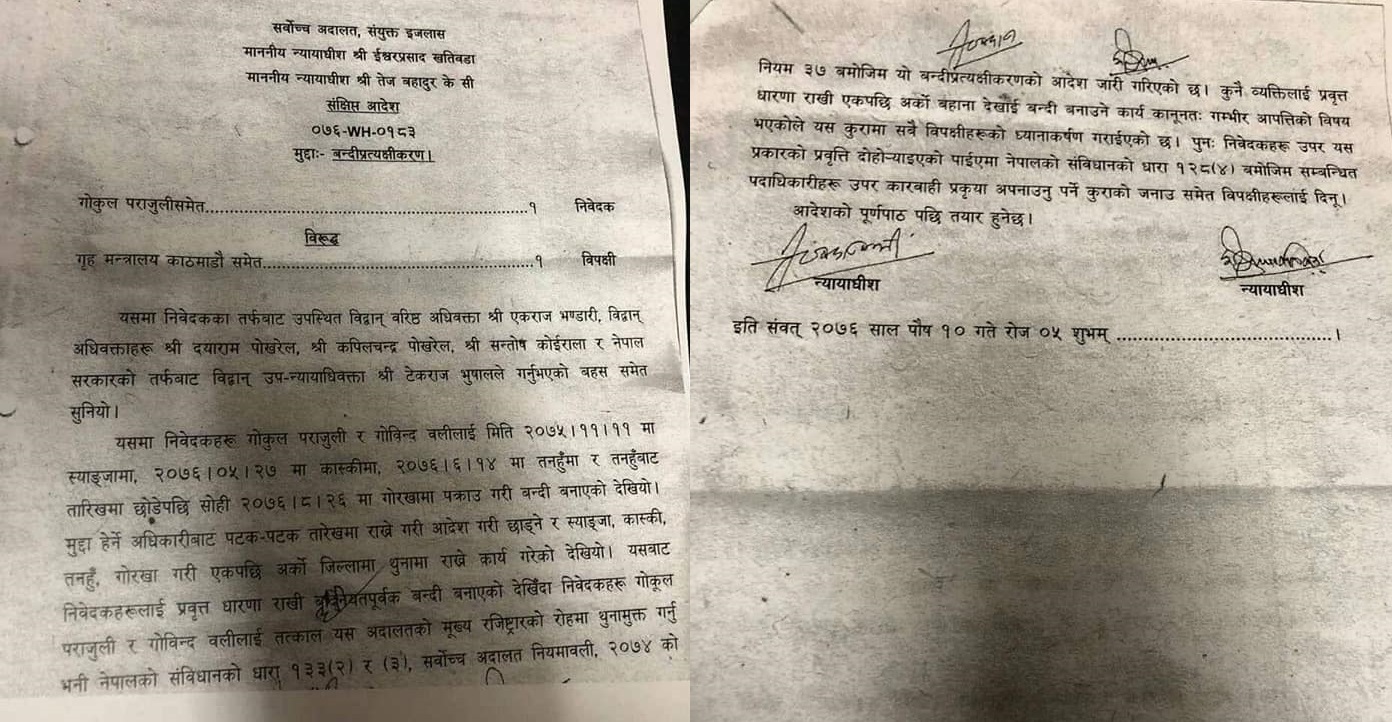 सर्वोच्च अदालत, संयुक्त इजलास
माननीय न्यायाधीश श्री ईश्वरप्रसाद खतिवडा
माननीय न्यायाधीश श्री तेज बहादुर के सी
संक्षिप्त आदेश
०७६-WH-०१८३
मुद्दाः- बन्दीप्रत्यक्षीकरण।
गोकुल पराजुलीसमेत.......................................................१ निवेदक
विरूद्ध
गृह मन्त्रालय काठमाडौ समेत..............................................१ विपक्षी
यसमा निवेदकका तर्फबाट उपस्थित विद्वान् वरिष्ठ अधिवक्ता श्री एकराज भण्डारी, विद्वान्
अधिवक्ताहरू श्री दयाराम पोखरेल, श्री कपिलचन्द्र पोखरेल, श्री सन्तोष कोईराला र नेपाल
सरकारको तर्फबाट विद्वान् उप-न्यायाधिवक्ता श्री टेकराज भुषालले गर्नुभएको बहस समेत
सुनियो।
यसमा निवेदकहरू गोकुल पराजुली र गोविन्द वलीलाई मिति २०७५।११।११ मा
स्याङ्जामा, २०७६।०५।२७ मा कास्कीमा, २०७६।६।१४ मा तनहुँमा र तनहुँबाट
तारिखमा छोडेपछि सोही २०७६।८।२६ मा गोरखामा पक्राउ गरी बन्दी बनाएको देखियो।
मुद्दा हेर्ने अधिकारीबाट पटक-पटक तारेखमा राख्ने गरी आदेश गरी छाड्ने र स्याङ्जा, कास्की,
तनहुँ, गोरखा गरी एकपछि अर्को जिल्लामा थुनामा राख्ने कार्य गरेको देखियो। यसबाट
निवेदकहरूलाई प्रवृत्त धारणा राखी बन्दी बनाएको देखिँदा निवेदकहरू गोकूल
पराजुली र गोविन्द वलीलाई तत्काल यस अदालतको मूख्य रजिष्ट्रारको रोहमा थुनामुक्त गर्नु
भनी नेपालको संविधानको धारा १३३(२) र (३), सर्वोच्च अदालत नियमावली, २०७४ को
नियम ३७ बमोजिम यो बन्दीप्रत्यक्षीकरणको आदेश जारी गरिएको छ। कुनै व्यक्तिलाई प्रवृत्त
धारणा राखी एकपछि अर्को बहाना देखाई बन्दी बनाउने कार्य कानूनतः गम्भीर आपत्तिको विषय
भएकोले यस कुरामा सवै विपक्षीहरूको ध्यानाकर्षण गराईएको छ। पुनः निवेदकहरू उपर यस
प्रकारको प्रवृत्ति दोहोऱ्याइएको पाईएमा नेपालको संविधानको धारा १२८(४) बमोजिम सम्बन्धित
पदाधिकारीहरू उपर कारवाही प्रकृया अपनाउनु पर्ने कुराको जनाउ समेत विपक्षीहरूलाई दिनू।
आदेशको पूर्णपाठ पछि तयार हुनेछ।
न्यायाधीश
न्यायाधीश
इति संवत् २०७६ साल पौष १० गते रोज ०५ शुभम् .....................................।